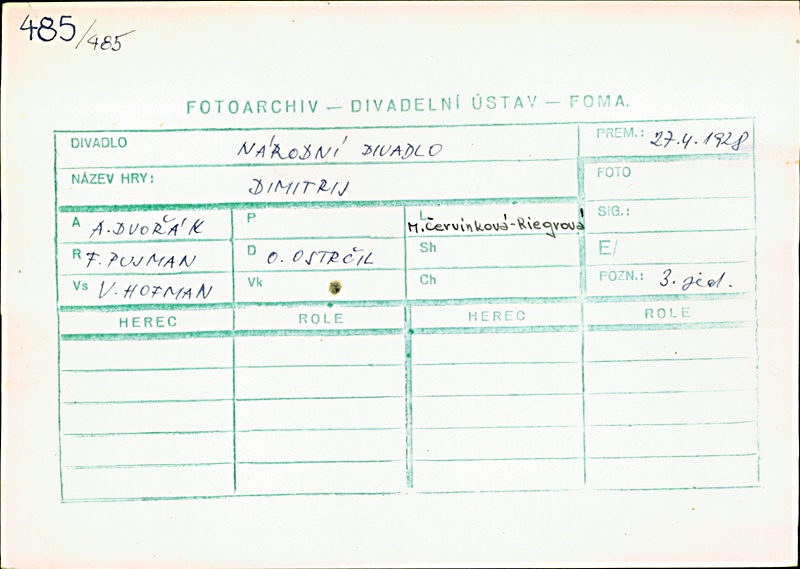 485/485
FOTOARCHIV — DIVADELNÍ ÚSTAV — FOMA.
DIVADLO NÁRODNÍ DIVADLO PREM.: 27.4.1928
NÁZEV HRY: DIMITRIJ FOTO
A A. DVOŘÁK P L M. Červinková-Riegrová SIG.:
R F. PUJMAN D O. OSTRČIL Sh E/
Vs V. HOFMAN Vk Ch POZN.: 3. jed.
HEREC ROLE HEREC ROLE